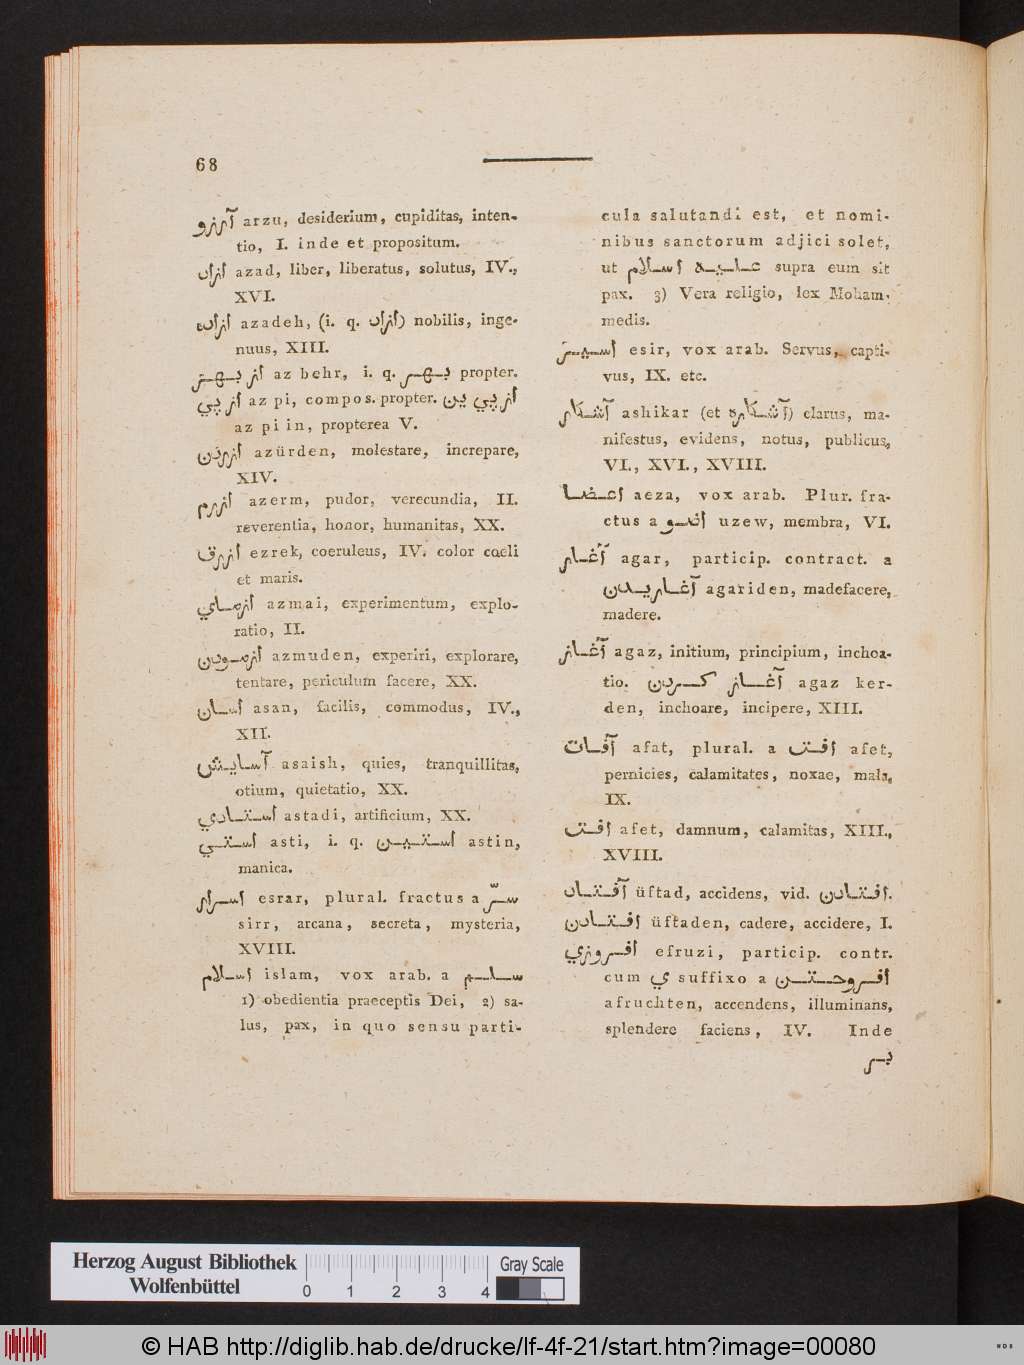 68
آرزو arzu, desiderium, cupiditas, inten-
tio, I. inde et propositum.
ازاد azad, liber, liberatus, solutus, IV.,
XVI.
ازاده azadeh, (i. q. ازاد) nobilis, inge-
nuus, XIII.
از بهر az behr, i. q. بهر propter.
از پي az pi, compos. propter. از پي ين
az pi in, propterea V.
ازردن azürden, molestare, increpare,
XIV.
ازرم azerm, pudor, verecundia, II.
reverentia, honor, humanitas, XX.
ازرق ezrek, coeruleus, IV. color coeli
et maris.
ازماي azmai, experimentum, explo-
ratio, II.
ازمودن azmuden, experiri, explorare,
tentare, periculum facere, XX.
اسان asan, facilis, commodus, IV.,
XII.
آسايش asaish, quies, tranquillitas,
otium, quietatio, XX.
استادي astadi, artificium, XX.
استي asti, i. q. استين astin,
manica.
اسرار esrar, plural. fractus a سرّ
sirr, arcana, secreta, mysteria,
XVIII.
اسلام islam, vox arab. a سلم
1) obedientia praeceptis Dei, 2) sa-
lus, pax, in quo sensu parti-
cula salutandi est, et nomi-
nibus sanctorum adjici solet,
ut عليه اسلام supra eum sit
pax. 3) Vera religio, lex Moham-
medis.
اسير esir, vox arab. Servus, capti-
vus, IX. etc.
آشكار ashikar (et آشكاره) clarus, ma-
nifestus, evidens, notus, publicus,
VI., XVI., XVIII.
اعضا aeza, vox arab. Plur. fra-
ctus a اضو uzew, membra, VI.
آغار agar, particip. contract. a
آغاريدن agariden, madefacere,
madere.
آغاز agaz, initium, principium, inchoa-
tio. آغاز كردن agaz ker-
den, inchoare, incipere, XIII.
آفات afat, plural. a افت afet,
pernicies, calamitates, noxae, mala,
IX.
افت afet, damnum, calamitas, XIII.,
XVIII.
آفتاد üftad, accidens, vid. افتادن.
افتادن üftaden, cadere, accidere, I.
افروزي efruzi, particip. contr.
cum ي suffixo a افروختن
afruchten, accendens, illuminans,
splendere faciens, IV. Inde
بر
Herzog August Bibliothek
Wolfenbüttel
0 1 2 3 4
Gray Scale
© HAB http://diglib.hab.de/drucke/lf-4f-21/start.htm?image=00080